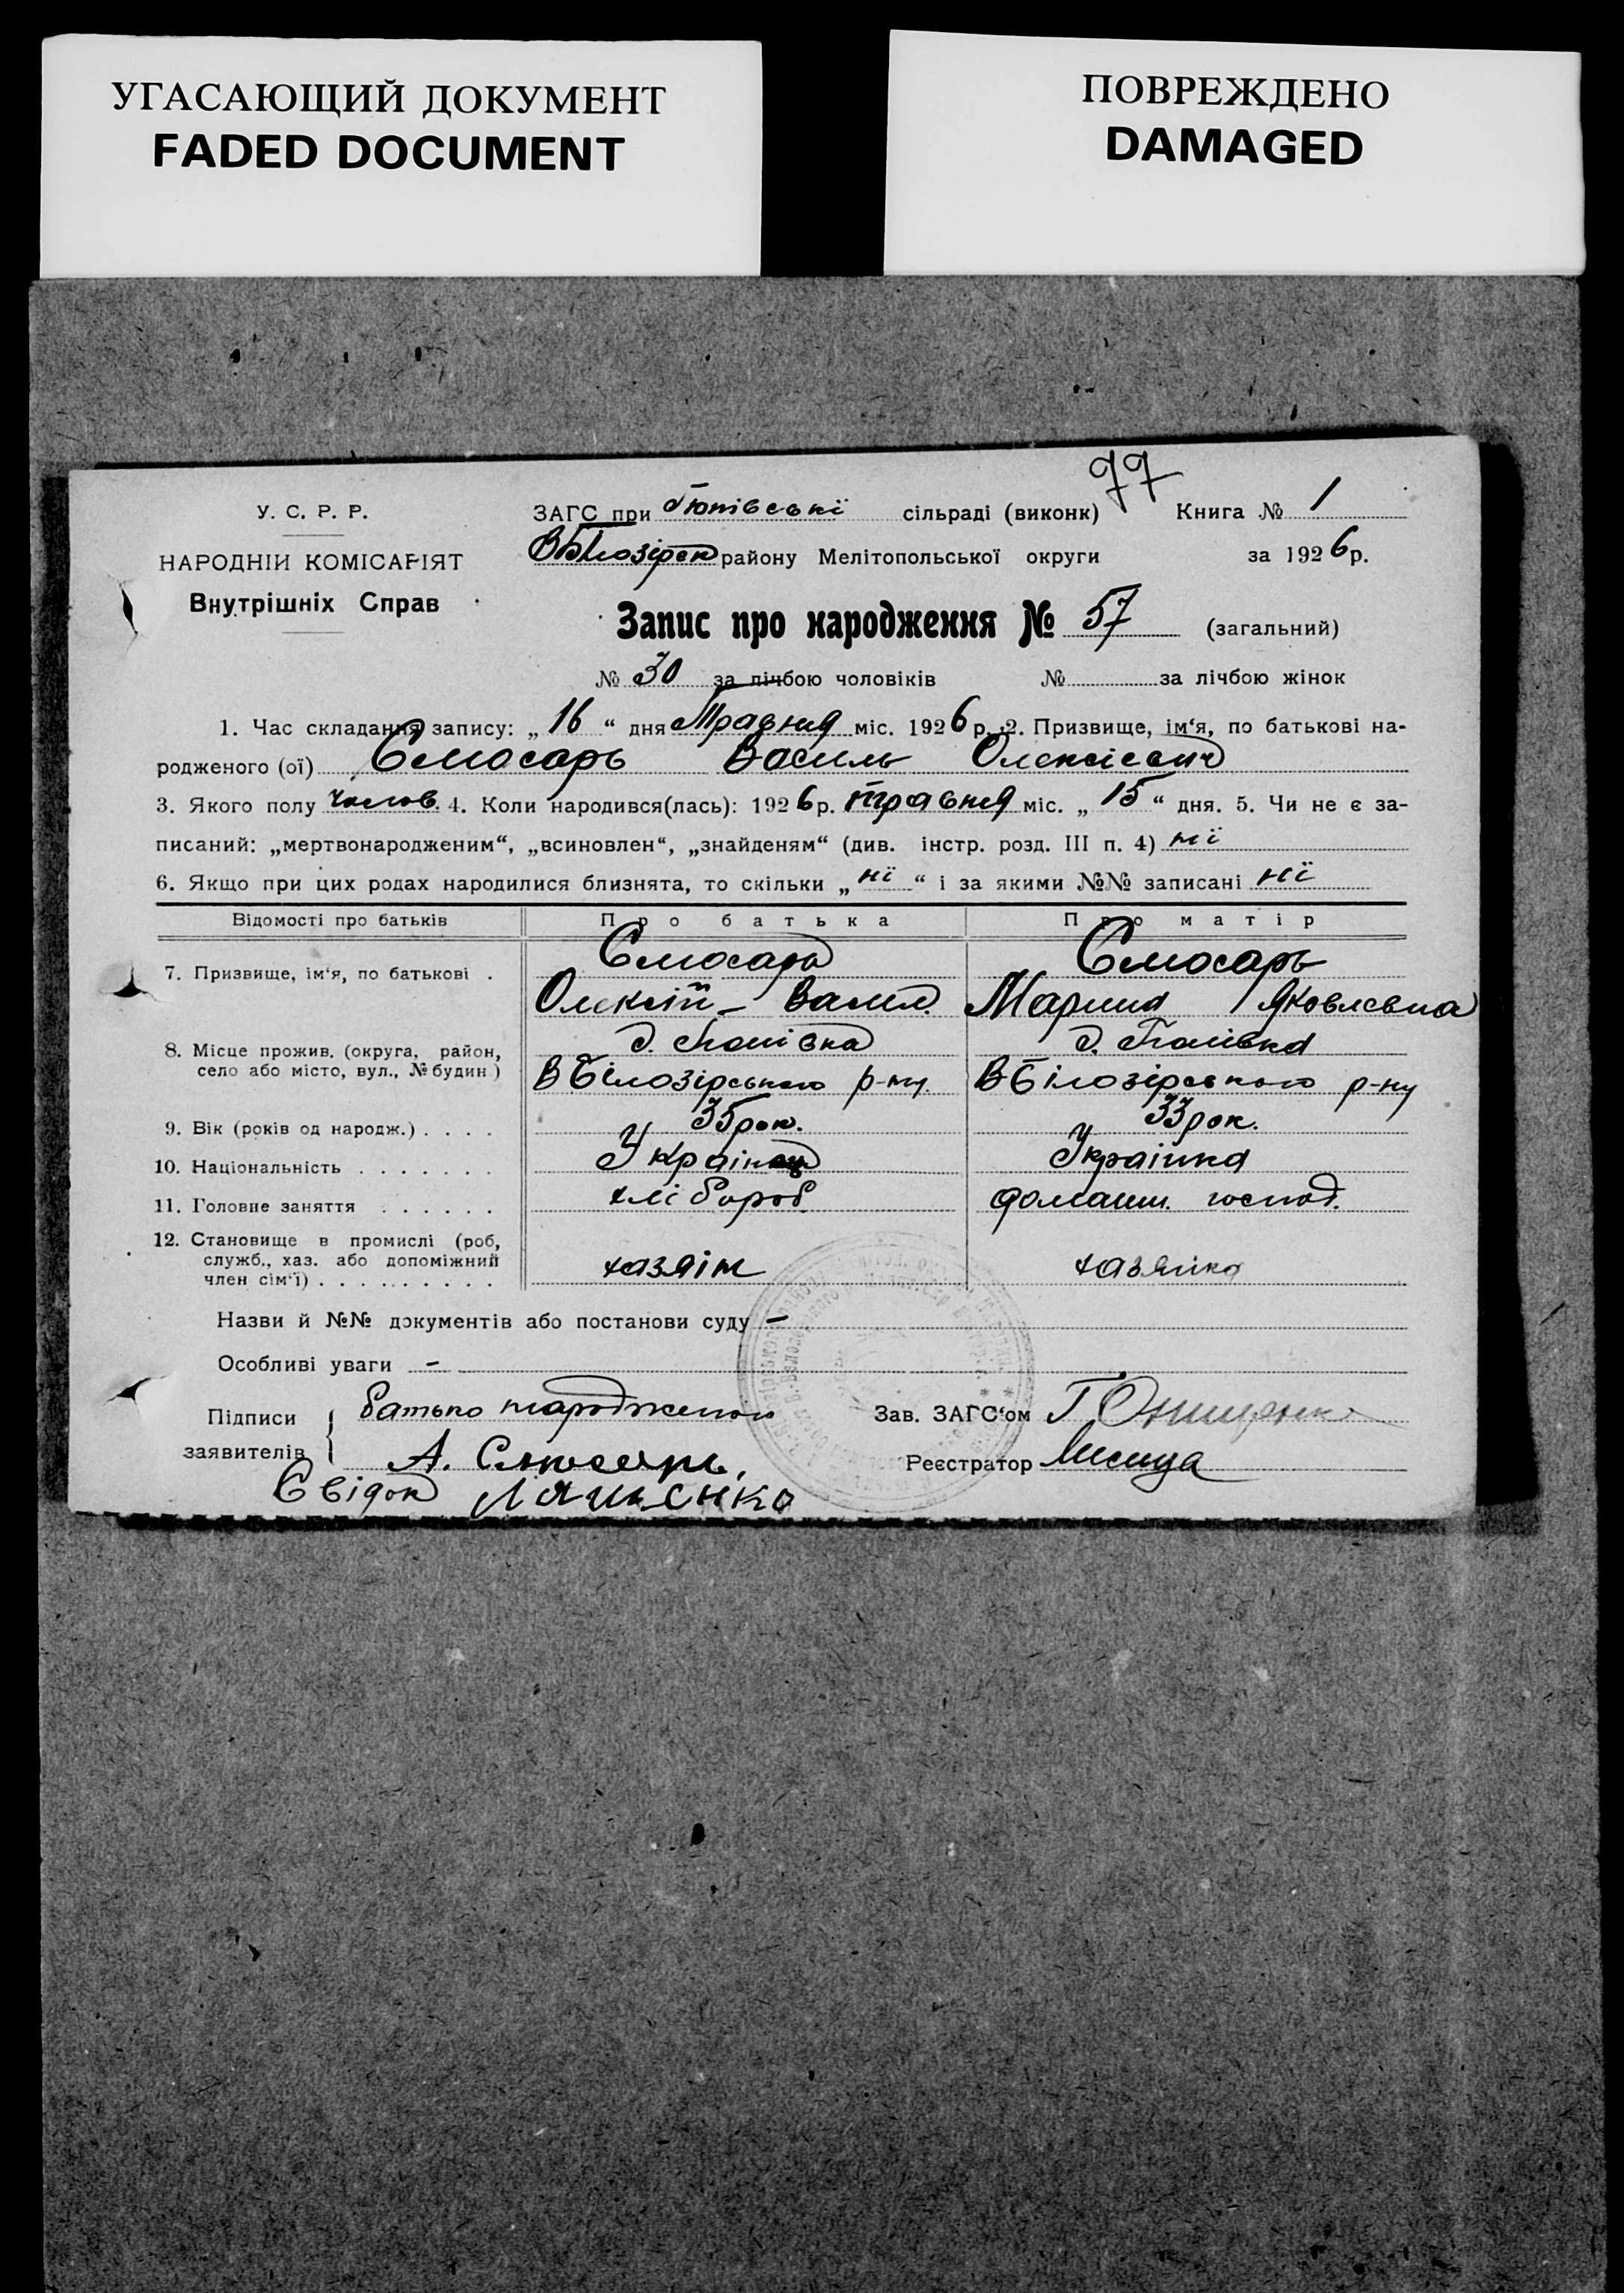 УГАСАЮЩИЙ ДОКУМЕНТ
FADED DOCUMENT
ПОВРЕЖДЕНО
DAMAGED
77
У. С. Р. Р.
НАРОДНІЙ КОМІСАРІЯТ
Внутрішніх Справ
ЗАГС при сільраді (виконк) Книга № 1
ВБілозірськ району Мелітопольської округи за 1926р.
Запис про народження № 57 (загальний)
№ 30 за лічбою чоловіків № за лічбою жінок
1. Час складання запису: „16“ дня Травня міс. 1926 р. 2. Призвище, ім‘я, по батькові на-
родженого (ої) Слюсарь Василь Олексієвич
3. Якого полу чолов. 4. Коли народився(лась): 1926 р. травня міс. „15“ дня. 5. Чи не є за-
писаний: „мертвонародженим“, „всиновлен“, „знайденям“ (див. інстр. розд. III п. 4) ні
6. Якщо при цих родах народилися близнята, то скільки „ні“ і за якими №№ записані ні
Відомості про батьків Про батька Про матір
7. Призвище, ім‘я, по батькові . Слюсарь Слюсарь
Олексій Васил. Марина Яковлевна
8. Місце прожив. (округа, район, д. Попівка д. Попівка
село або місто, вул., № будин) ВБілозірського р-ну. ВБілозірського р-ну
9. Вік (років од народж.) . . . . 35 рок. 33 рок.
10. Національність . . . . . . . Українець Українка
11. Головне заняття . . . . . . хлібороб домашн. господ.
12. Становище в промислі (роб,
служб., хаз. або допоміжний
член сім‘ї) . . . . . . . . . . хазяін хазяйка
Назви й №№ документів або постанови суду –
Особливі уваги –
Підписи
заявителів
батько
А. Слюсарь,
Свідок Ляшенко
Зав. ЗАГС‘ом
Реєстратор Лисица